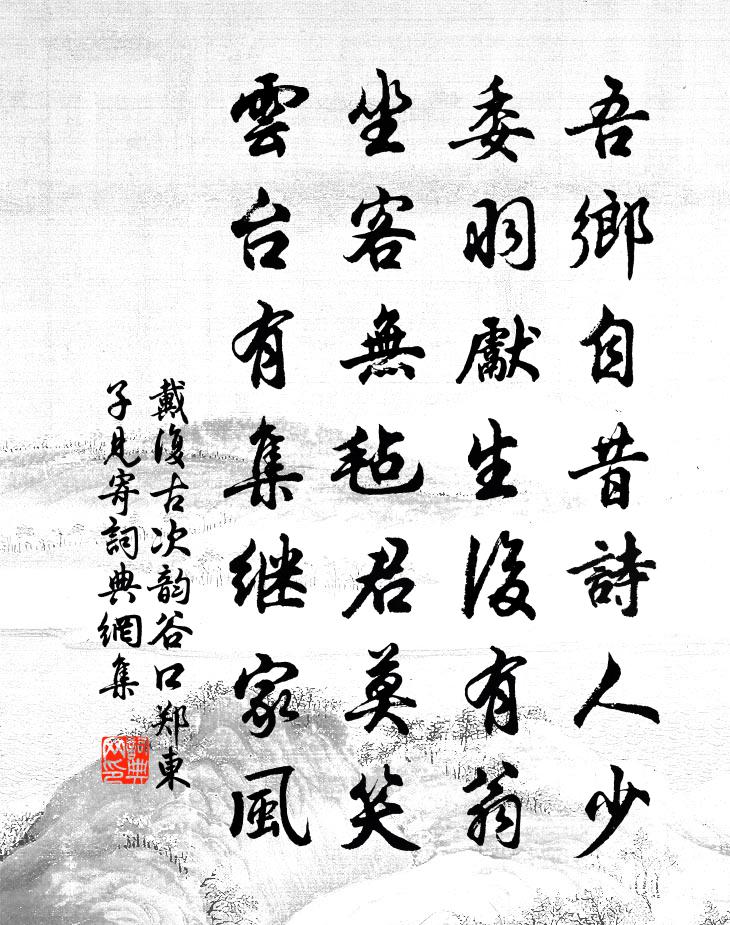 吾鄉自昔詩人少
委羽獻生後有翁
坐客無毡君莫笑
雲台有集继家風
戴復古次韵谷口郑東
子見寄詞典網集